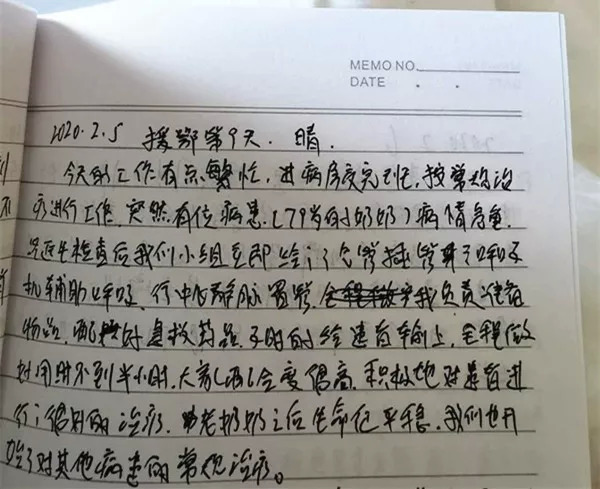 MEMO NO.
DATE . .
2020.2.5 援鄂第9天. 晴.
今天的工作有点繁忙, 进病房交完班, 按常规治
疗进行工作. 突然有位病患 (79岁的奶奶) 病情危重.
医生检查后我们小组立即给予气管插管并予呼吸
机辅助呼吸. 行中心静脉置管. 我负责准备
物品, 配 时急救药品. 及时的给患者输上, 全程做
到用时不到半小时. 大家 配合度很高. 积极地对患者进
行了很好的治疗. 老奶奶之后生命征平稳. 我们也开
始了对其他病患的常规治疗。